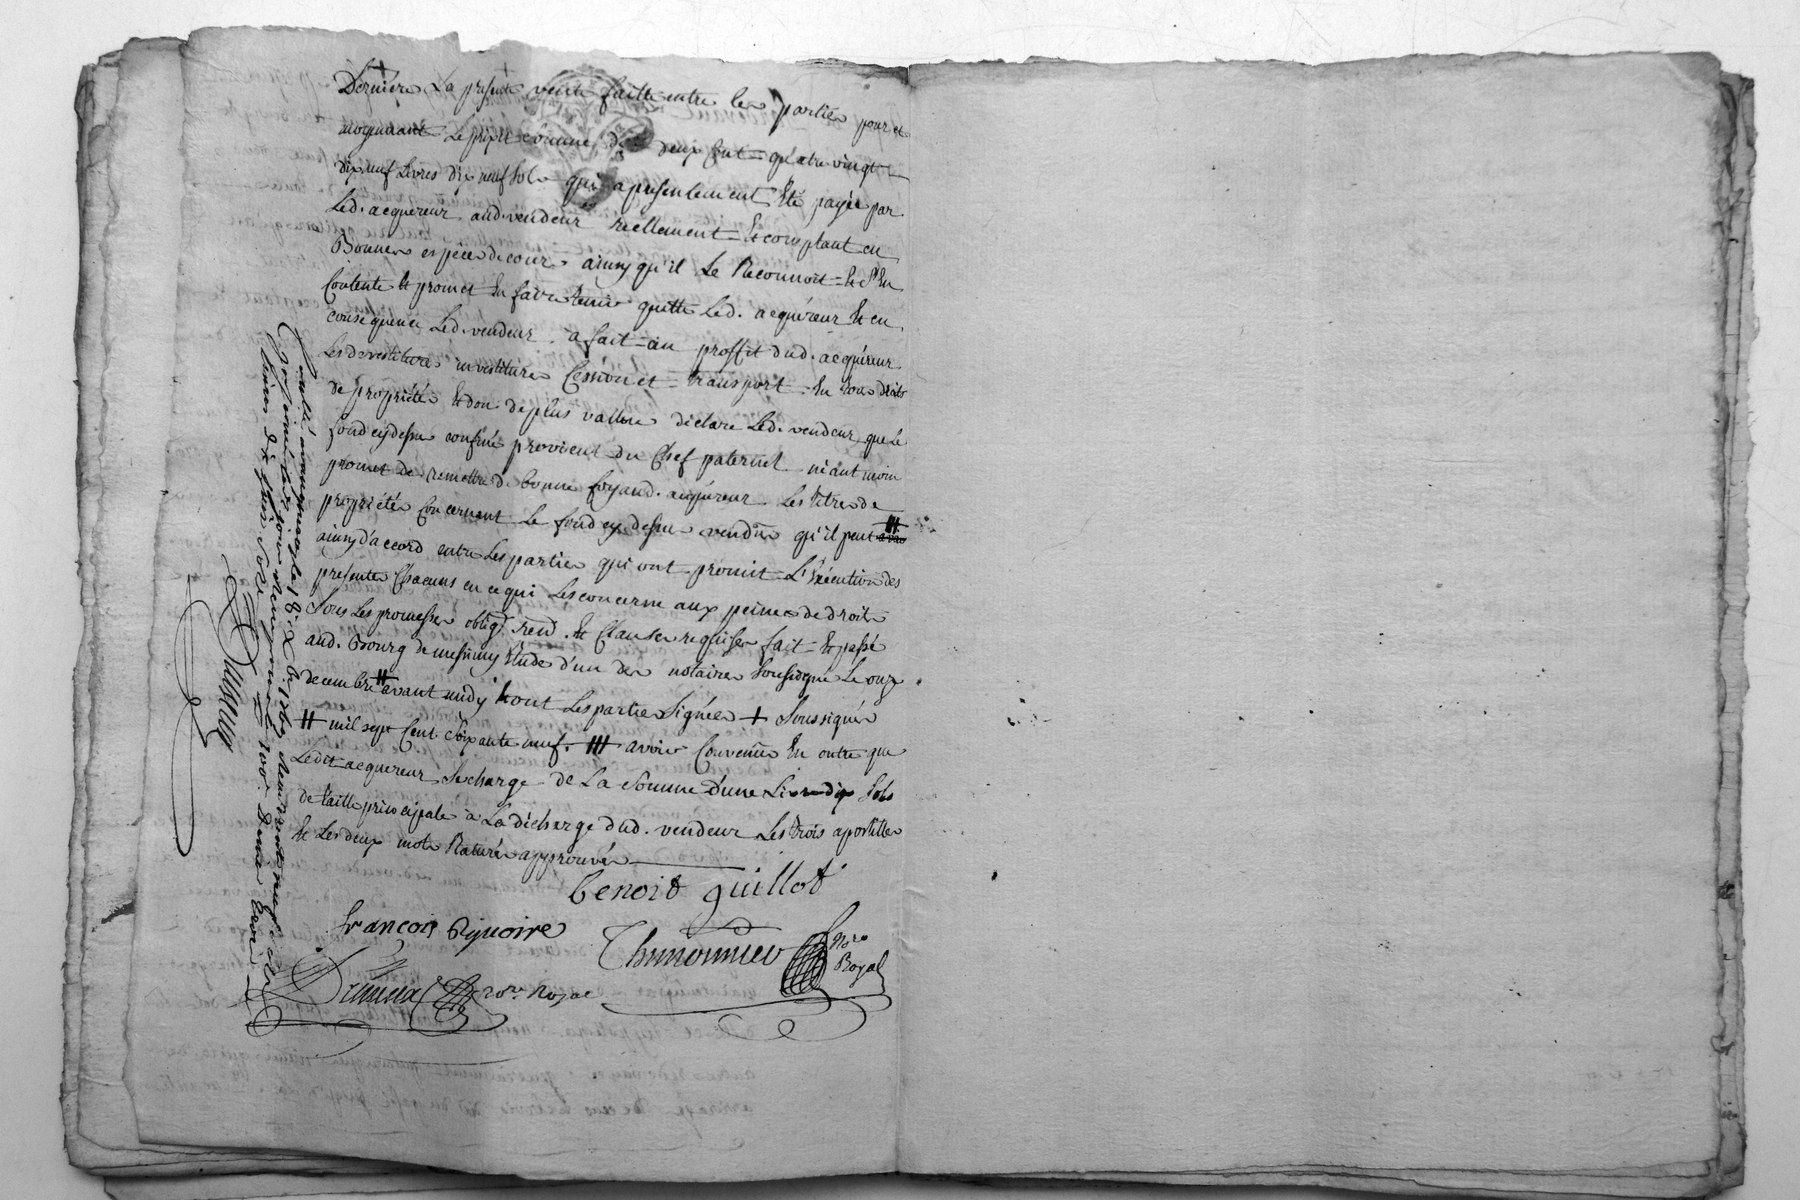 Derniere La presente vente faitte entre les parties pour et
moyennant Le prix et somme de deux Cent quatre vingt
dix neuf Livres dix neuf sols qui a presentement Eté payée par
Led. acquereur aud. vendeur reellement Et comptant en
Bonnes espèces de cours ainsy qu'il Le Reconnoit Et s'En
Contente Et promet En faire tenir quitte Led. acquéreur Et en
consequence Led. vendeur a fait au proffit dud. acquéreur
Les devestitures investitures Cession et transport En tous droits
de propriété Et don de plus vallue déclare Led. vendeur que Le
fond cy dessus confiné provient du Chef paternel néantmoin
promet de remettre de bonne foy aud. acquéreur Les titres de
propriétés Concernant Le fond cy dessus vendu qu'il peut avoir
ainsy d'accord entre Les parties qui ont promit L'Exécution des
presentes Chacuns en ce qui Les concerne aux peines de droit
Sous Les promesses oblig. ren. Et Clauses requises fait Et passé
aud. Bourg de messimy Etude d'un des notaires Soussigné Le onze
decembre # avant midy Et ont Les parties Signées + Soussignés
# mil sept Cent Soixante neuf. ### avoir Convenu En outre que
Ledit acquereur Se charge de La Somme d'une Livre dix Sols
de taille principale à La décharge dud. vendeur Les trois apostilles
Et Les deux mots Raturés approuvés
benoit guillot
françois
Thimonnier
Nore
Royal
nore Royal
Controllé a messimy le 18 Xbre 1769
Livres dix neuf Sols